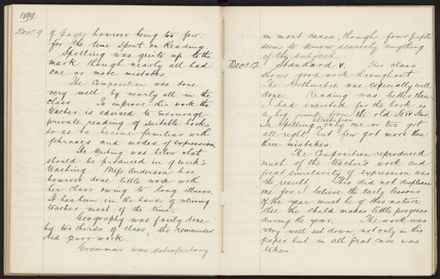 1899
Dec 9 of pages however being too few
for the time spent on Reading.
Spelling was quite up to the
mark though nearly all had
one or more mistakes
The Composition was done
very well by nearly all in the
class. To improve this work the
teacher is advised to encourage
private reading of suitable books,
so as to become familiar with
phrases and modes of expression
The Writing was below what
should be produced in
teaching Miss Anderson has
however done little work with
her class owing to long illness.
It has been in the hands of relieving
teacher most of the time.
Geography was fairly done
by two thirds of class, the remainder
did poor work
Grammar was satisfactory
in most cases, though four pupils
seems to know scarcely anything
of the subject
Dec 12 Standard V. This class
shows good work throughout
The Arithmetic was especially well
done. Reading was better than
I had expected for the book is
a big jump from the old IV
In Spelling only one or two got
all right but few got more than
three mistakes.
The Composition reproduced
much of the teacher's work and
great similarity of expression was
the result. This did not displease
me for I believe the early lessons
of the year must be of this nature
else the child makes little progress
during the year. The work was
very well set down, not only in this
paper but in all great care was
taken